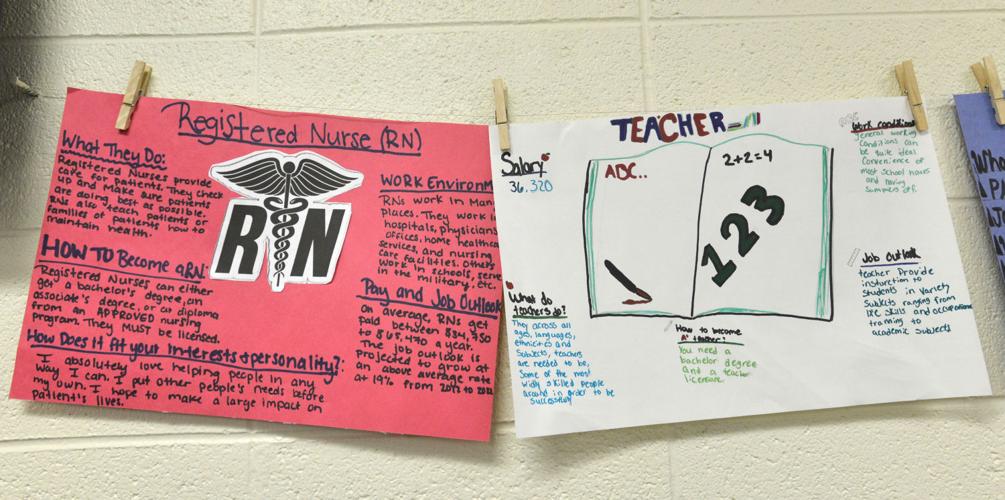 Registered Nurse (RN)
What They Do:
Registered Nurses provide
care for patients. They check
up and make sure patients
are doing best as possible.
RNs also teach patients or
families of patients how to
maintain health.
HOW TO Become a RN:
Registered Nurses can either
get a bachelor's degree, an
associate's degree, or a diploma
from an APPROVED nursing
program. They MUST be licensed.
How Does it fit your interests & personality?:
I absolutely love helping people in any
way I can. I put other people's needs before
my own. I hope to make a large impact on
patient's lives.
RN
WORK Environm
RNs work in Man
places. They work i
hospitals, physicians
offices, home healthca
services, and nursing
care facilities. Others
work in schools, serve
in the military, etc.
Pay and Job Outlook
on average, RNs get
paid between
to a year.
The job outlook is
projected to grow at
an above average rate
at 19% from 2012 to
TEACHER
Salary
36,320
ABC..
2+2=4
123
What do
teachers do?
They across all
ages, languages,
ethnicities and
Subjects, teachers
are needed to be,
Some of the most
widly skilled people
around in order to be
successfully
How to become
A teacher?
You need a
bachelor degree
and a teacher
license.
Work conditions
general working
conditions can
be quite ideal.
Convenience of
most school hours
and having
summers off.
Job outlook
teacher Provide
insturction to
students in variety
Subjects ranging from
life skills and occupational
tranning to
academic subjects